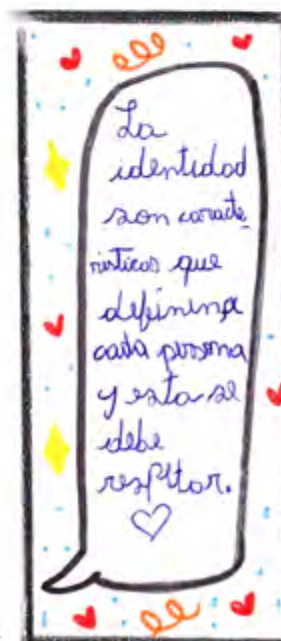 La
identidad
son caracte
risticas que
definen a
cada persona
y esta se
debe
respetar.